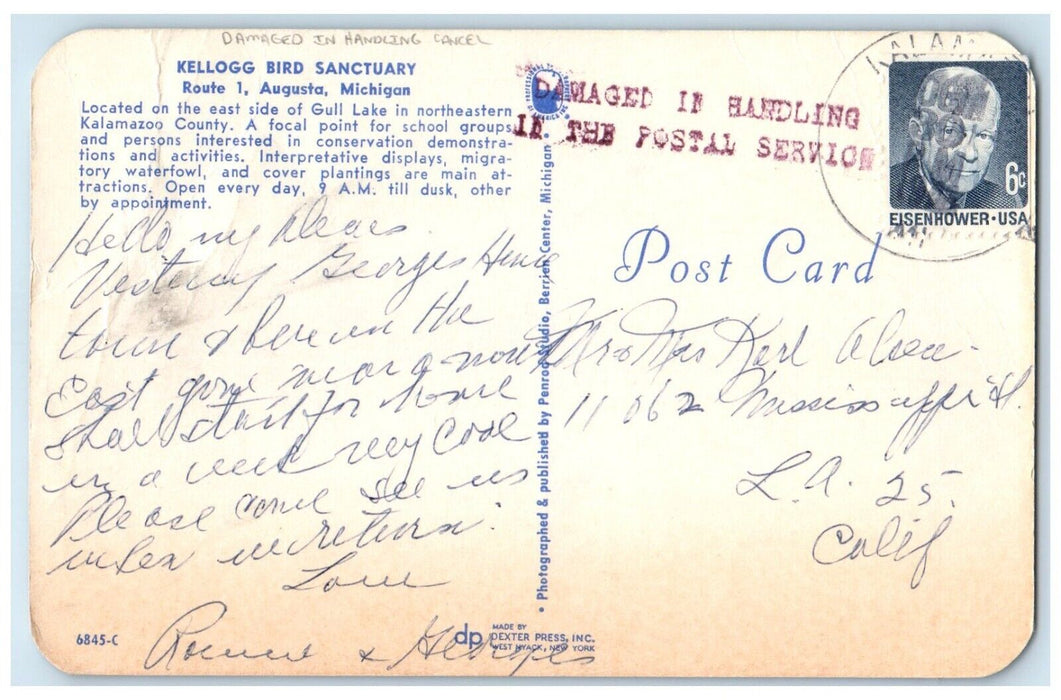 DAMAGED IN HANDLING CANCEL
KELLOGG BIRD SANCTUARY
Route 1, Augusta, Michigan
Located on the east side of Gull Lake in northeastern
Kalamazoo County. A focal point for school groups
and persons interested in conservation demonstra-
tions and activities. Interpretative displays, migra-
tory waterfowl, and cover plantings are main at-
tractions. Open every day, 9 A.M. till dusk, other
by appointment.
Hello my Dears
Georges Home
town & here in the
East gone near a month
shall start for home
in a week very cool
Please come see us
when we return.
Love
& Georges
6845-C
dp
MADE BY
DEXTER PRESS, INC.
WEST NYACK, NEW YORK
• Photographed & published by Penrod Studio, Berrien Center, Michigan •
DAMAGED IN HANDLING
IN THE POSTAL SERVICE
KALAMA
6c
EISENHOWER·USA
Post Card
Mr & Mrs Karl
11062 Mississippi St.
L.A. 25.
Calif